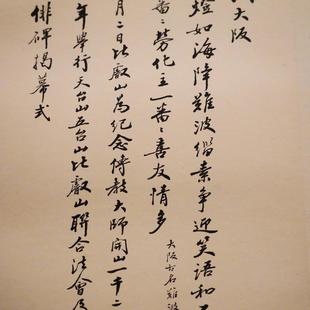 大阪
燈如海降難波缁素争迎笑语和
番々劳化主一番々善友情多
大阪古名難波
月二日比叡山為纪念傳教大师開山一千二
年舉行天台山五台山比叡山聯合法會及
俳碑揭幕式